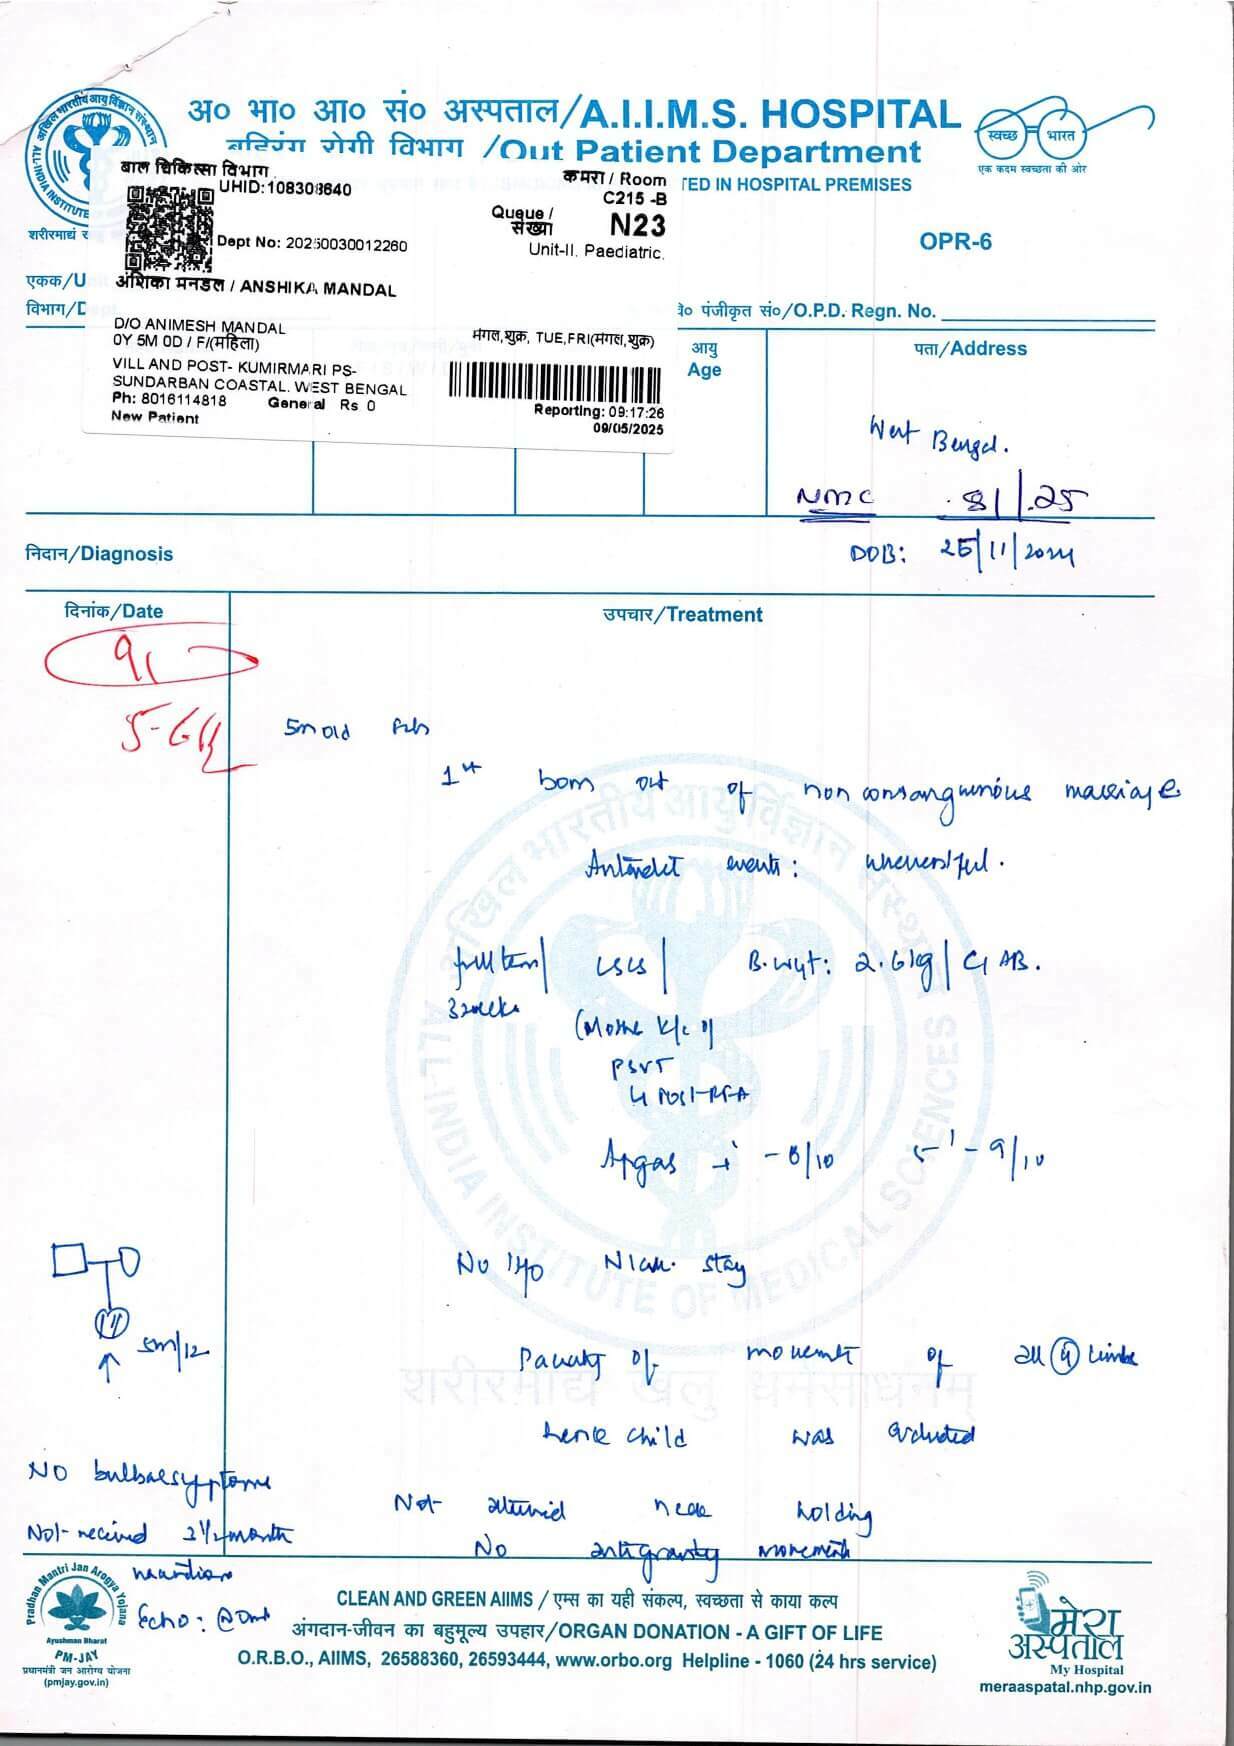 अ० भा० आ० सं० अस्पताल/A.I.I.M.S. HOSPITAL
बहिरंग रोगी विभाग /Out Patient Department
TED IN HOSPITAL PREMISES
स्वच्छ भारत
एक कदम स्वच्छता की ओर
बाल चिकित्सा विभाग
UHID:108308640
कमरा / Room
C215 -B
Queue /
संख्या
N23
Dept No: 20250030012260
Unit-II, Paediatric.
OPR-6
एकक/U
अंशिका मनडल / ANSHIKA MANDAL
विभाग/D
पंजीकृत सं०/O.P.D. Regn. No.
D/O ANIMESH MANDAL
0Y 5M 0D / F/(महिला)
मंगल,शुक्र, TUE,FRI(मंगल,शुक्र)
VILL AND POST- KUMIRMARI PS-
SUNDARBAN COASTAL, WEST BENGAL
Ph: 8016114818 General Rs 0
New Patient
Reporting: 09:17:26
09/05/2025
आयु
Age
पता/Address
West Bengal.
NMC 81/.25
निदान/Diagnosis
DOB: 25/11/2024
दिनांक/Date
उपचार/Treatment
5m old
1st born out of non consanguinous marriage
events:
full term/ LSCS/ B.wgt: 2.6kg/ CIAB.
(Mother k/c of
PSVT
POST-RFA
Apgar 5' - 9/10
No H/O NICU stay
5m/12
Paucity of movement of all 4 limbs
hence child was evaluated
No bulbar symptoms
Not attained neck holding
Not received 3 1/2 month
No antigravity movements
vaccation
Echo:
Pradhan Mantri Jan Arogya Yojana
Ayushman Bharat
PM-JAY
प्रधानमंत्री जन आरोग्य योजना
(pmjay.gov.in)
CLEAN AND GREEN AIIMS / एम्स का यही संकल्प, स्वच्छता से काया कल्प
अंगदान-जीवन का बहुमूल्य उपहार/ORGAN DONATION - A GIFT OF LIFE
O.R.B.O., AIIMS, 26588360, 26593444, www.orbo.org Helpline - 1060 (24 hrs service)
मेरा
अस्पताल
My Hospital
meraaspatal.nhp.gov.in